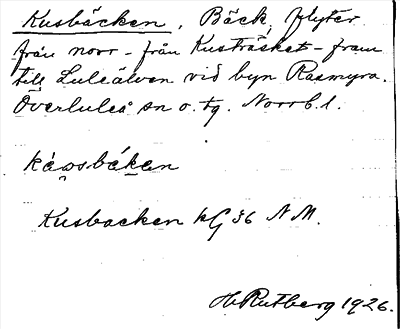 Kusbäcken, Bäck, flyter
från norr - från Kusträsket - fram
till Luleälven vid byn Rasmyra.
Överluleå sn o. tg. Norrb. l.
Kusbacken kG 36 N M.
H. Rutberg 1926.